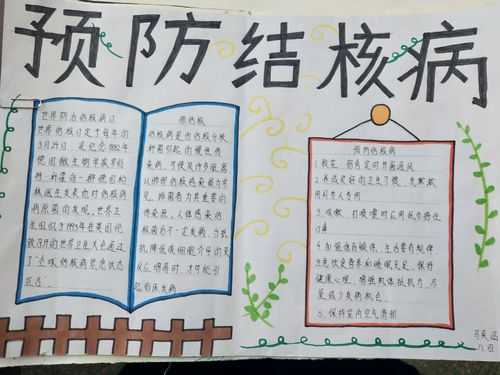 预防结核病
世界防治结核病日
世界结核日定于每年的
3月24日，是纪念1882年
德国微生物学家罗伯
病原菌的发现，世界卫
生组织于1993年在英国伦
肺结核
结核病是由结核分枝
杆菌引起的慢性传
染病，可侵及许多脏器
以肺部结核感染最为常
见，排菌者为其重要的
传染源，人体感染结
核菌后不一定发病，当抵
抗力降低或细胞介导的变
态反应增高时，才可能引
起临床发病
预防结核病
1.教室、宿舍定时开窗通风
2.养成良好的卫生习惯，
用具专人专用
3.咳嗽、打喷嚏时应用纸巾捂住
口鼻
4.加强体育锻炼，生活要有规律
注意饮食营养和睡眠充足，保持
健康心理，增强机体抵抗力，尽
量减少发病机会
5.保持室内空气清新